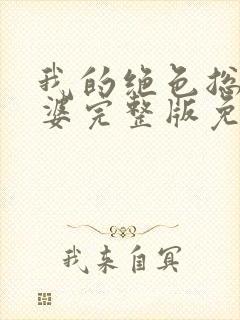 我的绝色总
婆完整版免
我来自冥